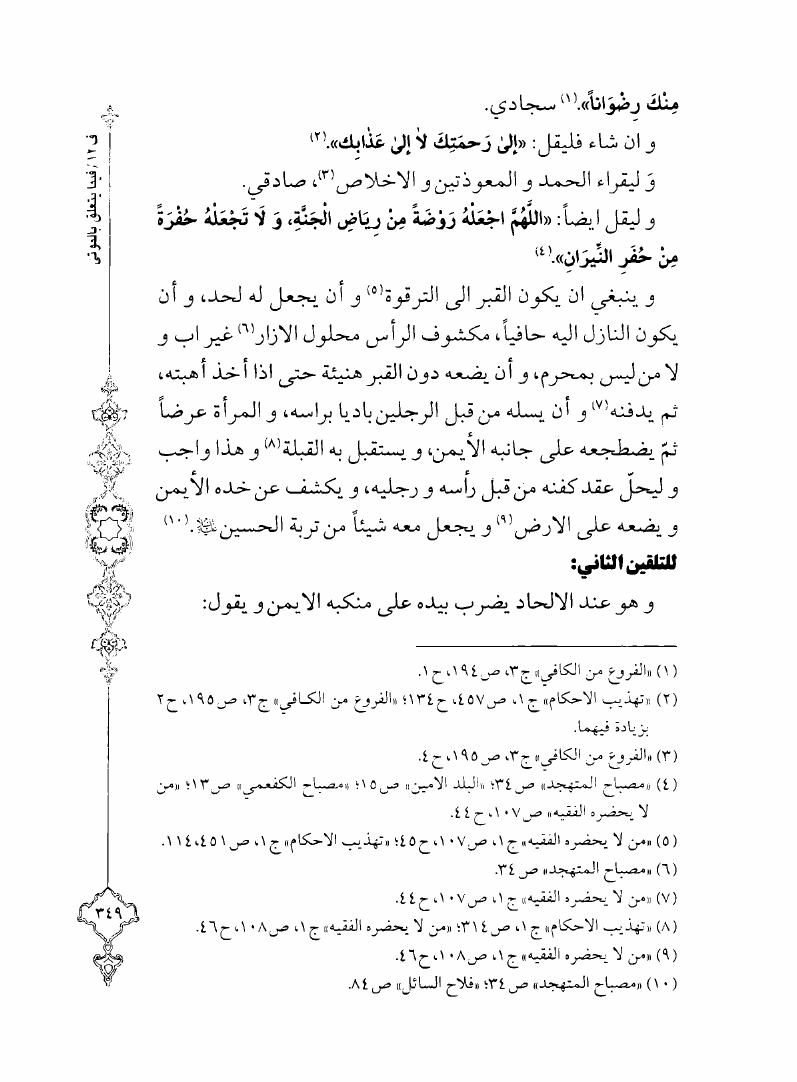 مِنْكَ رِضْوَاناً».(١) سجادي.
و ان شاء فليقل: «إلىٰ رَحمَتِكَ لاٰ إلىٰ عَذٰابِك».(٢)
وَ ليقراء الحمد و المعوذتين و الاخلاص(٣)، صادقي.
و ليقل ايضاً: «اللَّهُمَّ اجْعَلْهُ رَوْضَةً مِنْ رِيَاضِ الْجَنَّةِ، وَ لَا تَجْعَلْهُ حُفْرَةً
مِنْ حُفَرِ النِّيرَانِ».(٤)
و ينبغي ان يكون القبر الى الترقوة(٥) و أن يجعل له لحد، و أن
يكون النازل اليه حافياً، مكشوف الرأس محلول الازار(٦) غير اب و
لا من ليس بمحرم، و أن يضعه دون القبر هنيئة حتى اذا أخذ أهبته،
ثم يدفنه(٧) و أن يسله من قبل الرجلين باديا براسه، و المرأة عرضاً
ثمّ يضطجعه على جانبه الأيمن، و يستقبل به القبلة(٨) و هذا واجب
و ليحلّ عقد كفنه من قبل رأسه و رجليه، و يكشف عن خده الأيمن
و يضعه على الارض(٩) و يجعل معه شيئاً من تربة الحسين عليه السلام.(١٠)
للتلقين الثاني:
و هو عند الالحاد يضرب بيده على منكبه الايمن و يقول:
(١) «الفروع من الكافي» ج٣، ص١٩٤، ح١.
(٢) «تهذيب الاحكام» ج١، ص٤٥٧، ح١٣٤؛ «الفروع من الكافي» ج٣، ص١٩٥، ح٢
بزيادة فيهما.
(٣) «الفروع من الكافي» ج٣، ص١٩٥، ح٤.
(٤) «مصباح المتهجد» ص٣٤؛ «البلد الامين» ص١٥؛ «مصباح الكفعمي» ص١٣؛ «من
لا يحضره الفقيه» ص١٠٧، ح٤٤.
(٥) «من لا يحضره الفقيه» ج١، ص١٠٧، ح٤٥؛ «تهذيب الاحكام» ج١، ص٤٥١، ١١٤.
(٦) «مصباح المتهجد» ص٣٤.
(٧) «من لا يحضره الفقيه» ج١، ص١٠٧، ح٤٤.
(٨) «تهذيب الاحكام» ج١، ص٣١٤؛ «من لا يحضره الفقيه» ج١، ص١٠٨، ح٤٦.
(٩) «من لا يحضره الفقيه» ج١، ص١٠٨، ح٤٦.
(١٠) «مصباح المتهجد» ص٣٤؛ «فلاح السائل» ص٨٤.
ف ١٢ / فيما يتعلق بالموتى
٣٤٩